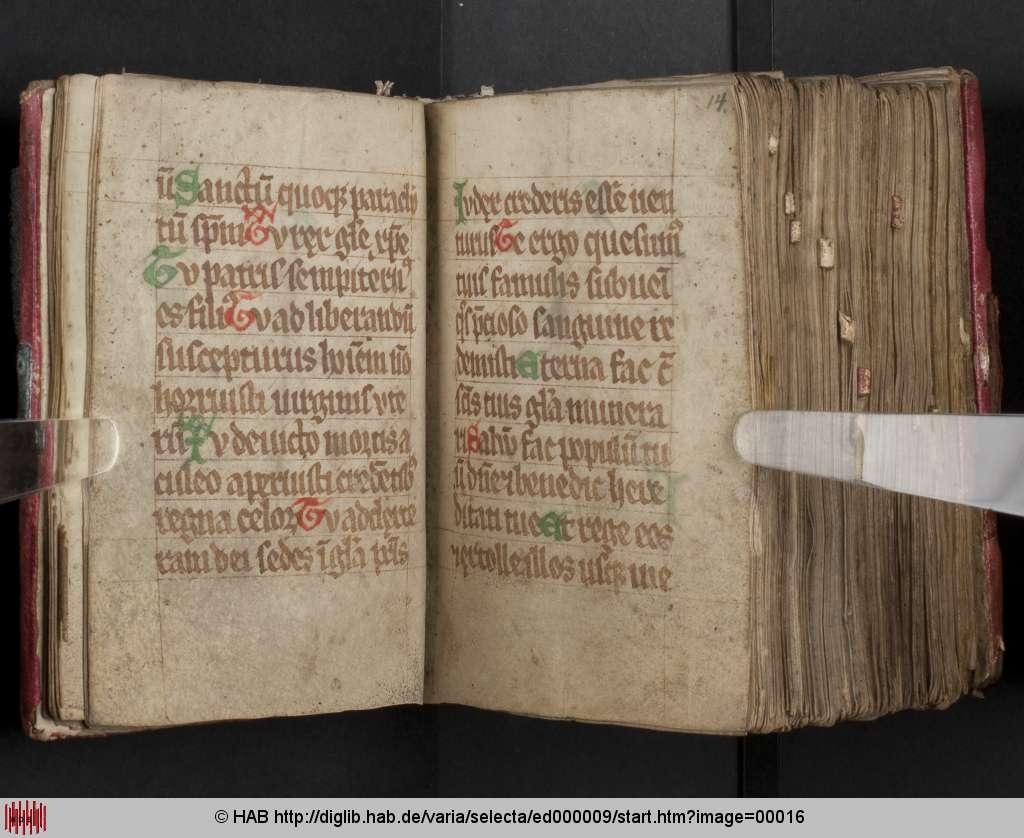 ū Sanctū quoq paracly
tū sp̄m Tu rex gl̄e xp̄e
Tu patris sempitern᷒
es fili Tu ad liberandū
suscepturus hoīem nō
horruisti uirginis vte
rū Tu deuicto mortis a
culeo aperuisti credētib᷒
regna celoꝝ Tu ad dexte
ram dei sedes ī gl̄a pr̄is
14.
Iudex crederis esse̅ uen
turus Te ergo quesum᷒
tuis famulis subueī
qͥs p̄cioso sanguine re
demisti Eterna fac c̄
sc̄is tuis gl̄a munera
ri Saluū fac populū tu
ū dn̄e ⁊ benedic here
ditati tue Et rege eos
⁊ extolle illos usqꝫ in e
© HAB http://diglib.hab.de/varia/selecta/ed000009/start.htm?image=00016